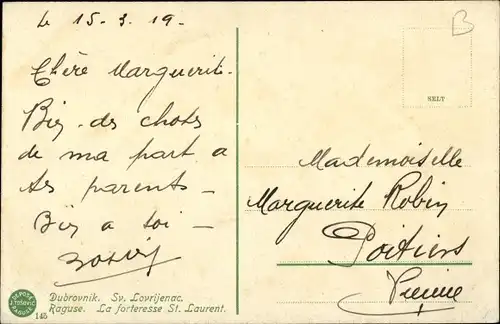 Le 15-3-19-
Chère Marguerite.
Bien des choses
de ma part a
tes parents -
Bien a toi -
Mademoiselle
Marguerite Robin
Poitiers
Vienne
B
RELT
Dubrovnik. Sv. Lovrijenac.
Raguse. La forteresse St. Laurent.
145